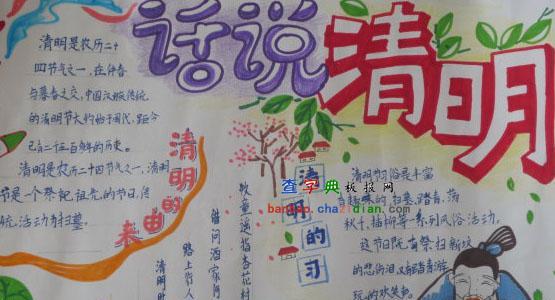 话说清明
清明是农历二十
四节气之一,在仲春
与暮春之交,中国汉族传统
的清明节大约始于周代,距今
已有二千五百年的历史。
清明是农历二十四节气之一,清明
节是一个祭祀祖先的节日,传
统活动为扫墓。
清明的来由
清明时
路上行人
借问酒家何
牧童遥指杏花村
清明的习
查字典板报网
banbao.chazidian.com
清明节习俗是丰富
有趣的,扫墓、踏青、荡
秋千、插柳等一系列风俗活动。
这节日既有祭扫新坟
的悲伤泪,又有踏青游
玩的欢笑声。